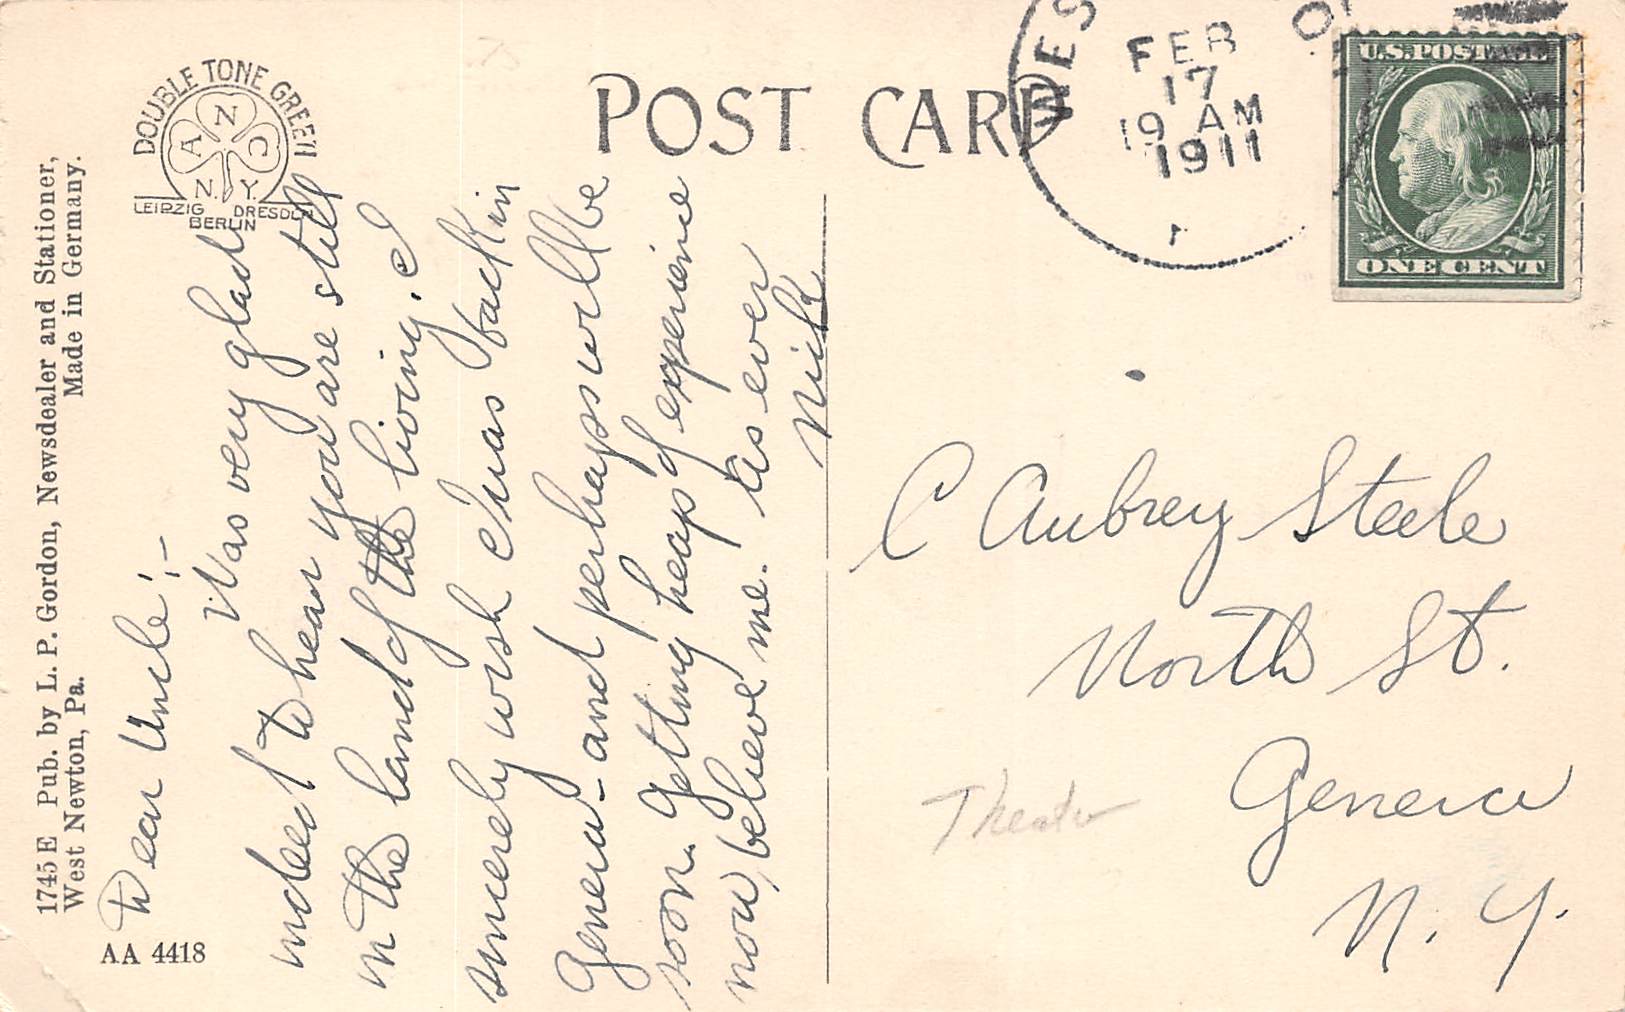 POST CARD
DOUBLE TONE GREEN
A N C
N. Y.
LEIPZIG DRESDEN
BERLIN
1745 E Pub. by L. P. Gordon, Newsdealer and Stationer,
West Newton, Pa. Made in Germany.
AA 4418
Dear Uncle:-
Was very glad
indeed to hear you are still
in the land of the living. I
sincerely wish I was back in
Geneva - and perhaps will be
soon. Getting heap of experience
now, believe me. As ever
Nick
WES
FEB
17
9 AM
1911
U.S. POSTAGE
ONE CENT
C Aubrey Steele
North St.
Geneva
N. Y.
Theater